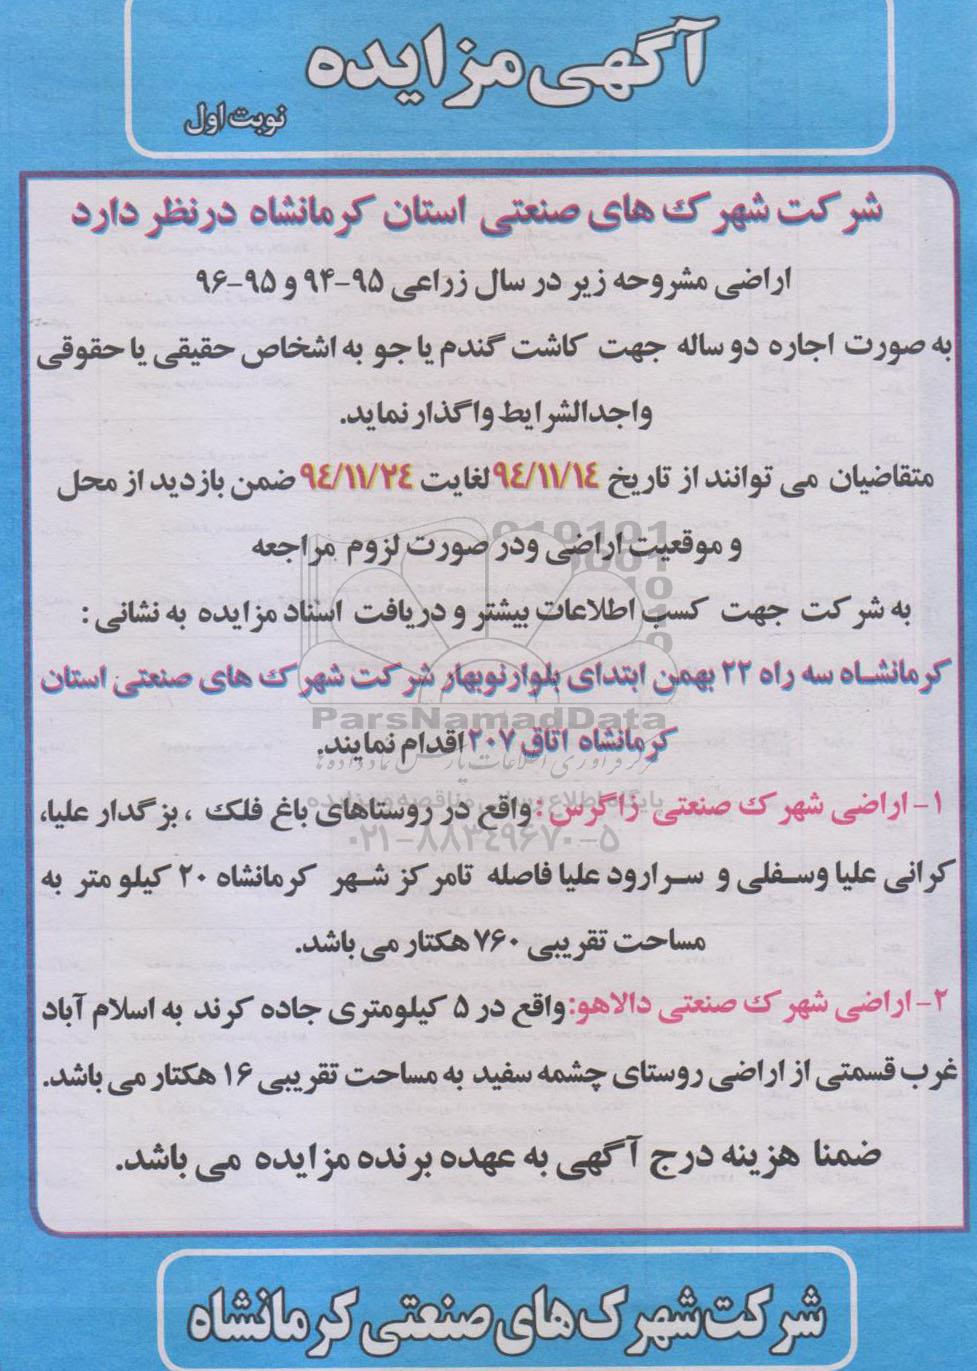 آگهی مزایده
نوبت اول
شرکت شهرک های صنعتی استان کرمانشاه درنظر دارد
اراضی مشروحه زیر در سال زراعی ۹۵-۹۴ و ۹۵-۹۶
به صورت اجاره دو ساله جهت کاشت گندم یا جو به اشخاص حقیقی یا حقوقی
واجدالشرایط واگذار نماید.
متقاضیان می توانند از تاریخ ۹٤/۱۱/۱٤ لغایت ۹٤/۱۱/۲٤ ضمن بازدید از محل
و موقعیت اراضی ودر صورت لزوم مراجعه
به شرکت جهت کسب اطلاعات بیشتر و دریافت اسناد مزایده به نشانی :
کرمانشاه سه راه ۲۲ بهمن ابتدای بلوارنوبهار شرکت شهرک های صنعتی استان
ParsNamadData
کرمانشاه اتاق ۲۰۷ اقدام نمایند.
مرکز فرآوری اطلاعات پارس نماد داده ها
پایگاه اطلاع رسانی مناقصه و مزایده
۱- اراضی شهرک صنعتی زاگرس : واقع در روستاهای باغ فلک ، بزگدار علیا،
۰۲۱-۸۸۳۴۹۶۷۰-۵
کرانی علیا وسفلی و سرارود علیا فاصله تامرکز شهر کرمانشاه ۲۰ کیلو متر به
مساحت تقریبی ۷۶۰ هکتار می باشد.
۲- اراضی شهرک صنعتی دالاهو: واقع در ۵ کیلومتری جاده کرند به اسلام آباد
غرب قسمتی از اراضی روستای چشمه سفید به مساحت تقریبی ۱۶ هکتار می باشد.
ضمنا هزینه درج آگهی به عهده برنده مزایده می باشد.
شرکت شهرک های صنعتی کرمانشاه